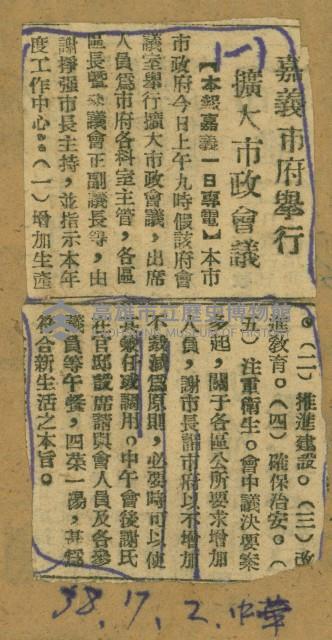 嘉義市府舉行
擴大市政會議
(一)
【本報嘉義一日專電】本市
市政府今日上午九時假該府會
議室舉行擴大市政會議,出席
人員爲市府各科室主管,各區
區長暨參議會正副議長等,由
謝掙强市長主持,並指示本年
度工作中心。(一)增加生產
。(二)推進建設。(三)改
進敎育。(四)確保治安。(
五)注重衛生。會中議決要案
多起,關于各區公所要求增加
人員,謝市長謂市府以不增加
不裁減爲原則,必要時可以使
其兼任或調用。中午會後謝氏
在官邸設席請與會人員及各參
議員等午餐,四菜一湯,甚爲
符合新生活之本旨。
高雄市立歷史博物館
KAOHSIUNG MUSEUM OF HISTORY
38.17.2.中華